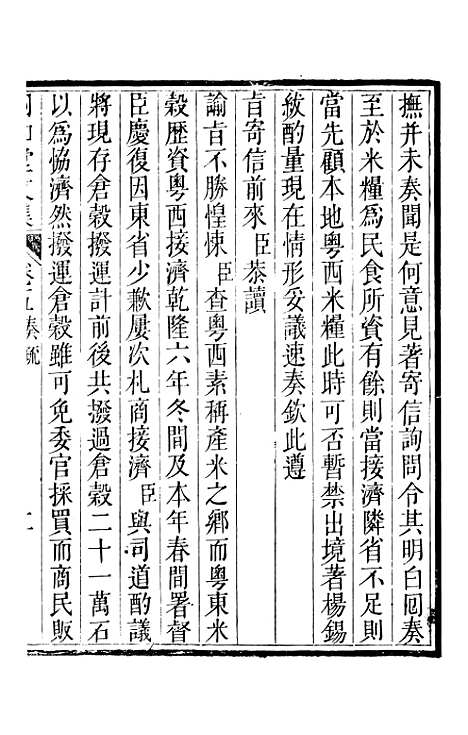 撫并未奏聞是何意見著寄信詢問令其明白囘奏
至於米糧為民食所資有餘則當接濟隣省不足則
當先顧本地粵西米糧此時可否暫禁出境著楊錫
紱酌量現在情形妥議速奏欽此遵
旨寄信前來臣恭讀
諭旨不勝惶悚臣查粵西素稱產米之鄉而粵東米
穀歷資粵西接濟乾隆六年冬間及本年春間署督
臣慶復因東省少歉屢次札商接濟臣與司道酌議
將現存倉穀撥運計前後共撥過倉穀二十一萬石
以為恊濟然撥運倉穀雖可免委官採買而商民販
文集 卷五奏疏 二